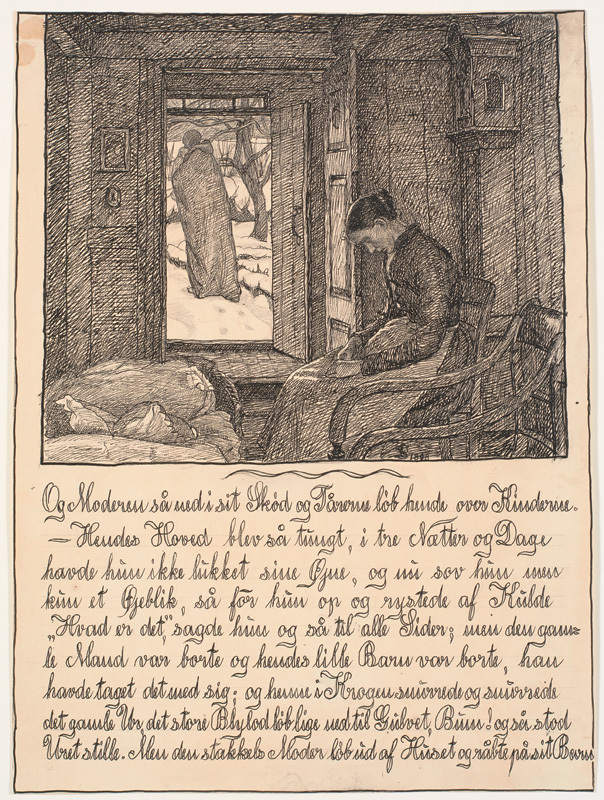 Og Moderen så ned i sit Skød og Tårerne løb hende over Kinderne.
— Hendes Hoved blev så tungt, i tre Nætter og Dage
havde hun ikke lukket sine Øjne, og nu sov hun men
kun et Øjeblik, så fór hun op og rystede af Kulde
„Hvad er det," sagde hun og så til alle Sider; men den gam=
le Mand var borte og hendes lille Barn var borte, han
havde taget det med sig; og henne i Krogen snurrede og snurrede
det gamle Ur, det store Blylod løb lige ned til Gulvet, Bum! og så stod
Uret stille. Men den stakkels Moder løb ud af Huset og råbte på sit Barn